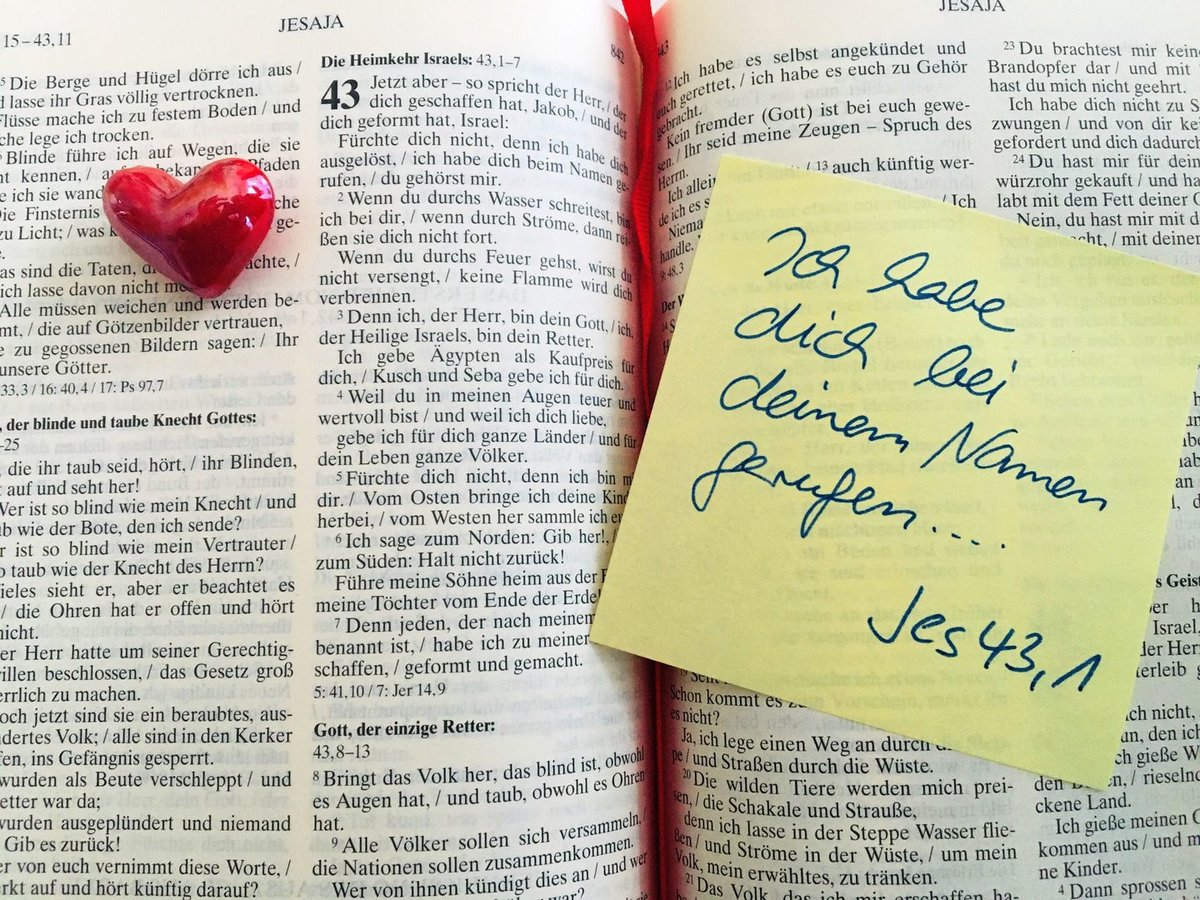 JESAJA
15–43,11
Die Berge und Hügel dörre ich aus /
lasse ihr Gras völlig vertrocknen.
Flüsse mache ich zu festem Boden / und
lege ich trocken.
Blinde führe ich auf Wegen, die sie
kennen, /
Die Finsternis
zu Licht; /
sind die Taten,
ich lasse davon nicht
Alle müssen weichen und werden be-
/ die auf Götzenbilder vertrauen,
zu gegossenen Bildern sagen: / Ihr
unsere Götter.
33,3 / 16: 40,4 / 17: Ps 97,7
der blinde und taube Knecht Gottes:
–25
die ihr taub seid, hört, / ihr Blinden,
auf und seht her!
Wer ist so blind wie mein Knecht / und
wie der Bote, den ich sende?
ist so blind wie mein Vertrauter /
taub wie der Knecht des Herrn?
Vieles sieht er, aber er beachtet es
/ die Ohren hat er offen und hört
nicht.
Herr hatte um seiner Gerechtig-
willen beschlossen, / das Gesetz groß
herrlich zu machen.
Doch jetzt sind sie ein beraubtes, aus-
Volk; / alle sind in den Kerker
ins Gefängnis gesperrt.
wurden als Beute verschleppt / und
war da;
wurden ausgeplündert / und niemand
Gib es zurück!
Wer von euch vernimmt diese Worte, /
merkt auf und hört künftig darauf?
842
Die Heimkehr Israels: 43,1–7
43 Jetzt aber – so spricht der Herr, / der
dich geschaffen hat, Jakob, / und der
dich geformt hat, Israel:
Fürchte dich nicht, denn ich habe dich
ausgelöst, / ich habe dich beim Namen ge-
rufen, / du gehörst mir.
2 Wenn du durchs Wasser schreitest, bin
ich bei dir, / wenn durch Ströme, dann rei-
ßen sie dich nicht fort.
Wenn du durchs Feuer gehst, wirst du
nicht versengt, / keine Flamme wird dich
verbrennen.
3 Denn ich, der Herr, bin dein Gott, / ich,
der Heilige Israels, bin dein Retter.
Ich gebe Ägypten als Kaufpreis für
dich, / Kusch und Seba gebe ich für dich.
4 Weil du in meinen Augen teuer und
wertvoll bist / und weil ich dich liebe,
gebe ich für dich ganze Länder / und für
dein Leben ganze Völker.
5 Fürchte dich nicht, denn ich bin
dir. / Vom Osten bringe ich deine
herbei, / vom Westen her sammle ich
6 Ich sage zum Norden: Gib her!, /
zum Süden: Halt nicht zurück!
Führe meine Söhne heim aus der
meine Töchter vom Ende der Erde
7 Denn jeden, der nach meinem
benannt ist, / habe ich zu meiner
schaffen, / geformt und gemacht.
5: 41,10 / 7: Jer 14,9
Gott, der einzige Retter:
43,8–13
8 Bringt das Volk her, das blind ist, obwohl
es Augen hat, / und taub, obwohl es Ohren
hat.
9 Alle Völker sollen sich versammeln, /
die Nationen sollen zusammenkommen.
Wer von ihnen kündigt dies an / und wer
war?
JESAJA
43
12 Ich habe es selbst angekündet und
euch gerettet, / ich habe es euch zu Gehör
gebracht.
Kein fremder (Gott) ist bei euch gewe-
sen. / Ihr seid meine Zeugen – Spruch des
Herrn.
Ich allein / 13 auch künftig wer-
de ich es / Ich
handle,
9: 48,3
Ich habe
dich bei
deinem Namen
gerufen....
Jes 43,1
Schon kommt es
es nicht?
Ja, ich lege einen Weg an durch
/ und Straßen durch die Wüste.
20 Die wilden Tiere werden mich prei-
sen, / die Schakale und Strauße,
denn ich lasse in der Steppe Wasser flie-
ßen / und Ströme in der Wüste, / um mein
Volk, mein erwähltes, zu tränken.
21 Das Volk, das ich mir erschaffen ha-
23 Du brachtest mir
Brandopfer dar / und mit
hast du mich nicht geehrt.
Ich habe dich nicht zu
zwungen / und von dir
gefordert und dich dadurch
24 Du hast mir für dein
würzrohr gekauft / und
labt mit dem Fett deiner
Nein, du hast mir mit
/ mit deinen
Geist
Israel.
der Herr
nicht,
den ich
gieße
den Boden, / rieselnde
ckene Land.
Ich gieße meinen
kommen aus / und
ne Kinder.
4 Dann sprossen